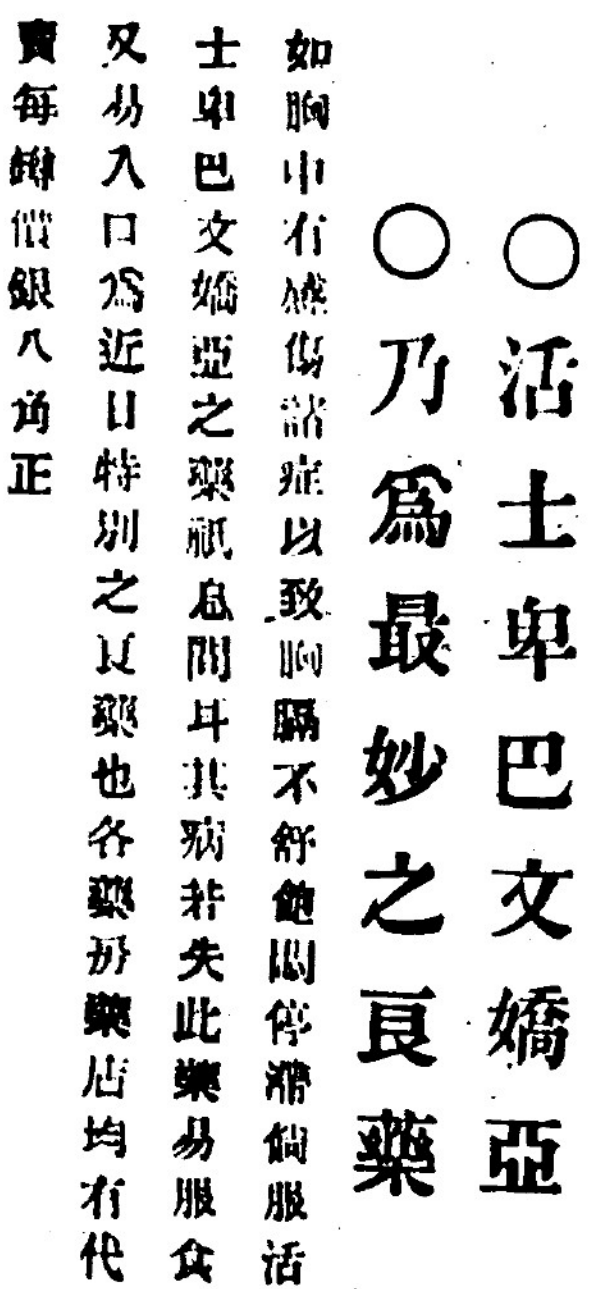 ○活士卑巴文嬌亞
○乃爲最妙之良藥
如胸中有感傷諸症以致胸膈不舒飽悶停滯倘服活
士卑巴文嬌亞之藥祇息間耳其病若失此藥易服食
又易入口爲近日特別之良藥也各藥房藥店均有代
賣每罇價銀八角正